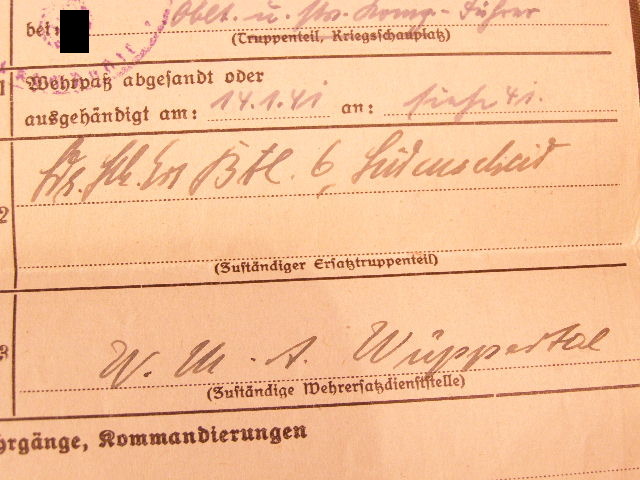 bei:
Oblt. u. Komp.-Führer
(Truppenteil, Kriegsschauplatz)
1 Wehrpaß abgesandt oder
ausgehändigt am: 14.1.41 an: siehe 41.
2 Ers. Btl. 6, Lüdenscheid
(Zuständiger Ersatztruppenteil)
3 W. M. A. Wuppertal
(Zuständige Wehrersatzdienststelle)
hrgänge, Kommandierungen